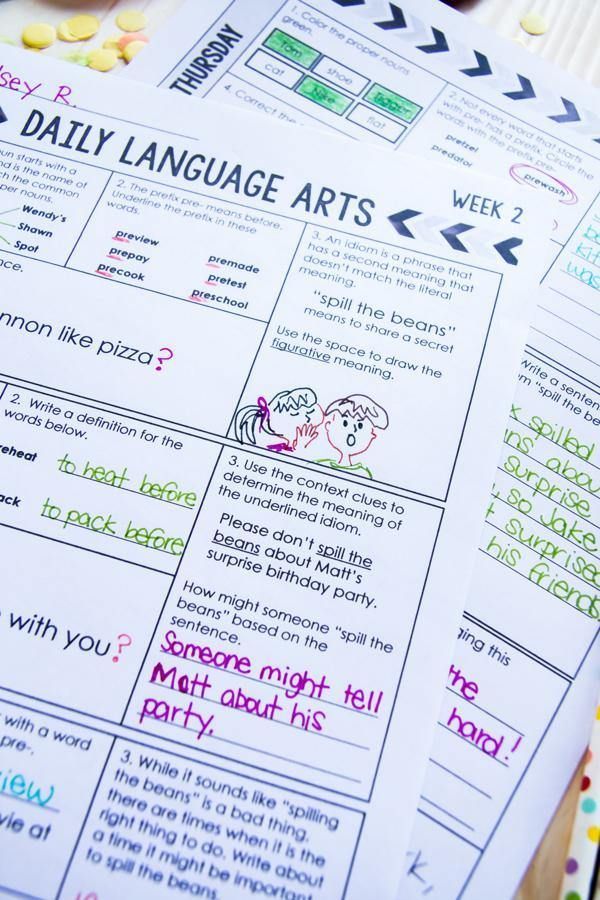 THURSDAY
1. Color the proper nouns
green.
Tom
cat
shoe
Nike
flat
4. Correct the
2. Not every word that starts
with pre- has a prefix. Circle the
words with the prefix pre-.
pretzel
predator
prewash
sey R.
DAILY LANGUAGE ARTS
WEEK 2
un starts with a
nd is the name of
ch the common
per nouns.
Wendy's
Shawn
Spot
2. The prefix pre- means before.
Underline the prefix in these
words.
preview
prepay
precook
premade
pretest
preschool
3. An idiom is a phrase that
has a second meaning that
doesn't match the literal
meaning.
"spill the beans"
means to share a secret
Use the space to draw the
figurative meaning.
ace.
nnon like pizza?
2. Write a definition for the
words below.
reheat
to heat before
ack
to pack before
3. Use the context clues to
determine the meaning of
the underlined idiom.
Please don't spill the
beans about Matt's
surprise birthday party.
How might someone "spill the
beans" based on the
sentence.
Someone might tell
Matt about his
party.
with you?
with a word
pre-.
view
yle at
3. While it sounds like "spilling
the beans" is a bad thing,
there are times when it is the
right thing to do. Write about
a time it might be important
to spill the beans.
Write a senten
m "spill the be
spilled
ns abou
surprise
, so Jake
t surprised
his friends
ging this
the
hard!